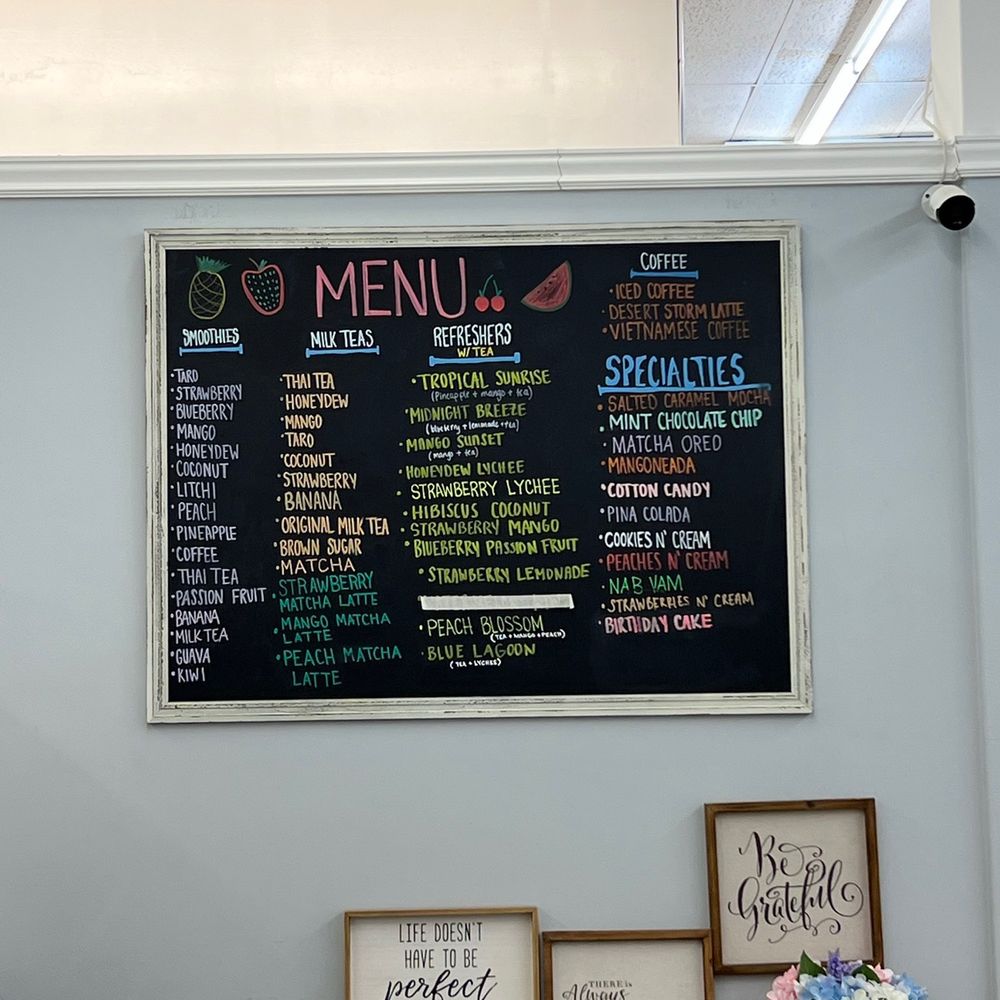 MENU
SMOOTHIES
• TARO
• STRAWBERRY
• BLUEBERRY
• MANGO
• HONEYDEW
• COCONUT
• LITCHI
• PEACH
• PINEAPPLE
• COFFEE
• THAI TEA
• PASSION FRUIT
• BANANA
• MILK TEA
• GUAVA
• KIWI
MILK TEAS
• THAI TEA
• HONEYDEW
• MANGO
• TARO
• COCONUT
• STRAWBERRY
• BANANA
• ORIGINAL MILK TEA
• BROWN SUGAR
• MATCHA
• STRAWBERRY
MATCHA LATTE
• MANGO MATCHA
LATTE
• PEACH MATCHA
LATTE
REFRESHERS
W/ TEA
• TROPICAL SUNRISE
(Pineapple + mango + tea)
• MIDNIGHT BREEZE
(blueberry + lemonade + tea)
• MANGO SUNSET
(mango + tea)
• HONEYDEW LYCHEE
• STRAWBERRY LYCHEE
• HIBISCUS COCONUT
• STRAWBERRY MANGO
• BLUEBERRY PASSION FRUIT
• STRAWBERRY LEMONADE
• PEACH BLOSSOM
(TEA + MANGO + PEACH)
• BLUE LAGOON
(TEA + LYCHEE)
COFFEE
• ICED COFFEE
• DESERT STORM LATTE
• VIETNAMESE COFFEE
SPECIALTIES
• SALTED CARAMEL MOCHA
• MINT CHOCOLATE CHIP
• MATCHA OREO
• MANGONEADA
• COTTON CANDY
• PINA COLADA
• COOKIES N' CREAM
• PEACHES N' CREAM
• NAB VAM
• STRAWBERRIES N' CREAM
• BIRTHDAY CAKE
Be
Grateful
LIFE DOESN'T
HAVE TO BE
perfect
THERE IS
Always